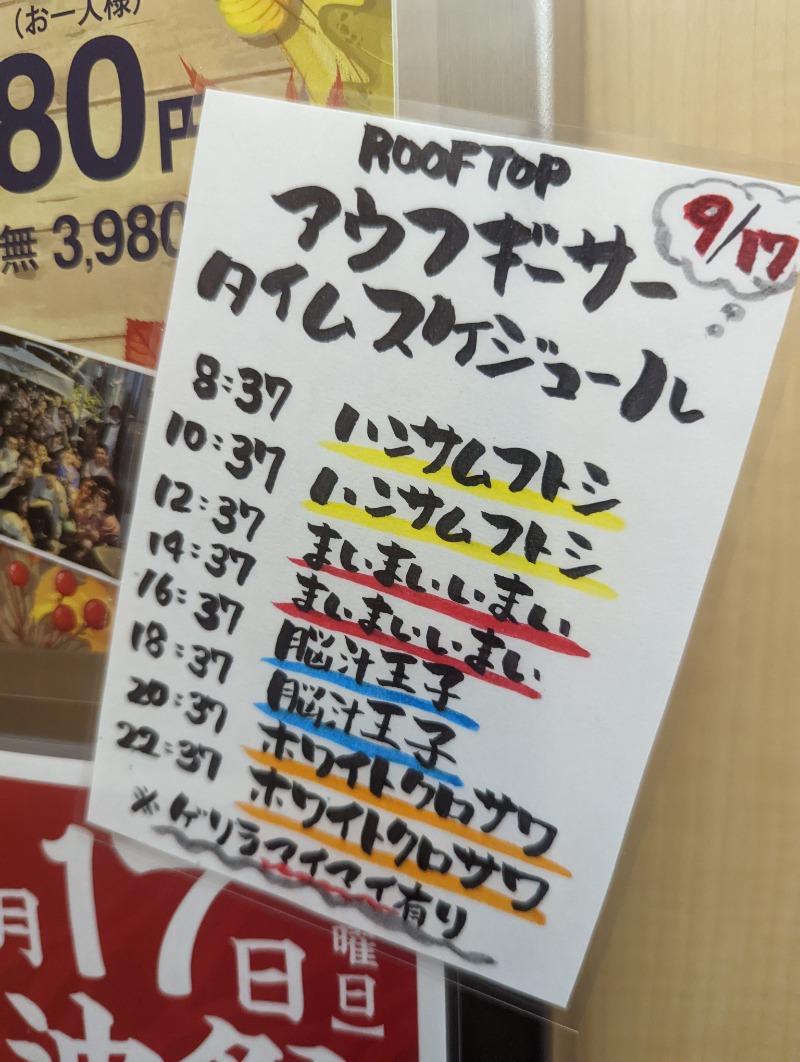 (お一人様)
80円
無 3,980
ROOFTOP
9/17
アウフギーサー
タイムスケジュール
8:37 ハンサムフトシ
10:37 ハンサムフトシ
12:37 まいまいいまい
14:37 まいまいいまい
16:37 脳汁王子
18:37 脳汁王子
20:37 ホワイトクロサワ
22:37 ホワイトクロサワ
※ゲリラマイマイ有り
月17日
曜日】